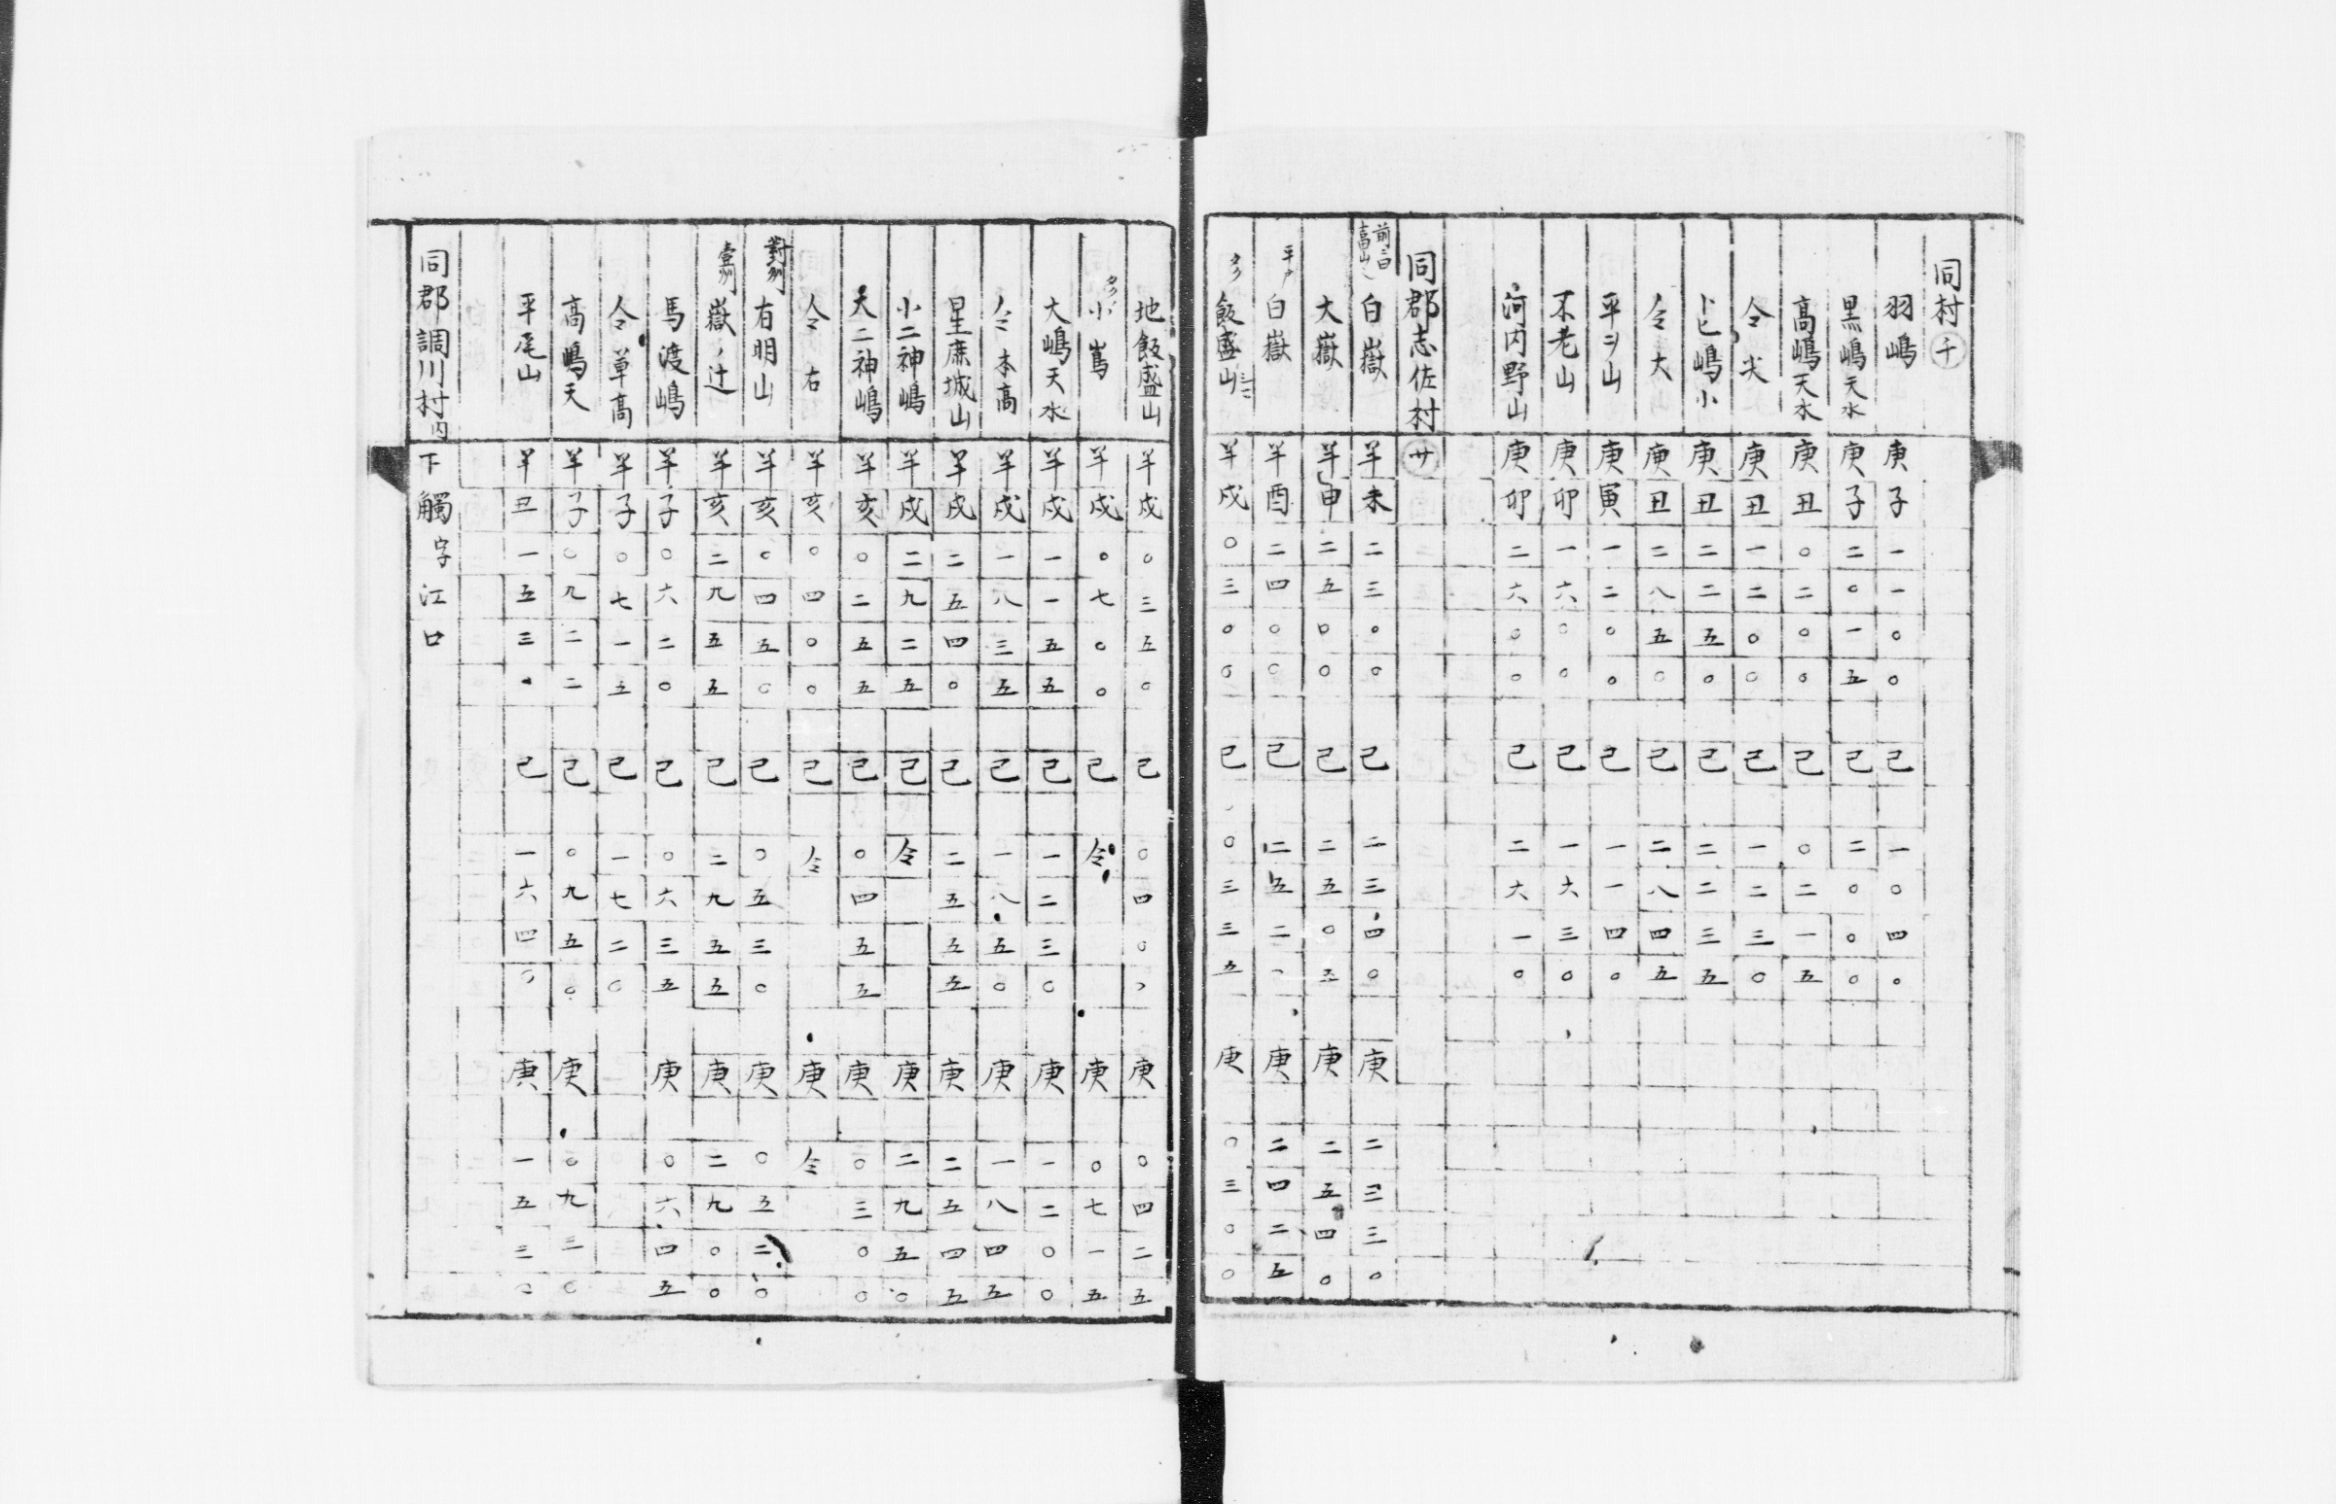 同村 千
羽嶋 庚子 一一〇〇 己 一〇四〇
黒嶋天水 庚子 二〇一五 己 二〇〇〇
高嶋天水 庚丑 〇二〇〇 己 〇二一五
仝尖 庚丑 一二〇〇 己 一二三〇
トヒ嶋小 庚丑 二二五〇 己 二二三五
仝大 庚丑 二八五〇 己 二八四五
平ヲ山 庚寅 一二〇〇 己 一一四〇
不老山 庚卯 一六〇〇 己 一六三〇
河内野山 庚卯 二六〇〇 己 二六一〇
同郡志佐村 廿
白嶽 羊未 二三〇〇 己 二三四〇 庚 二三三〇
大嶽 羊申 二五〇〇 己 二五〇五 庚 二五四〇
平戸 白嶽 羊酉 二四〇〇 己 二五二〇 庚 二四二五
飯盛山 羊戌 〇三〇〇 己 〇三三五 庚 〇三〇〇
地飯盛山 羊戌 〇三五〇 己 〇四〇〇 庚 〇四二五
小嶌 羊戌 〇七〇〇 己 仝 庚 〇七一五
大嶋天水 羊戌 一一五五 己 一二三〇 庚 一二〇〇
仝本高 羊戌 一八三五 己 一八五〇 庚 一八四五
星鹿城山 羊戌 二五四〇 己 二五五五 庚 二五四五
小二神嶋 羊戌 二九二五 己 仝 庚 二九五〇
大二神嶋 羊亥 〇二五五 己 〇四五五 庚 〇三〇〇
仝右 羊亥 〇四〇〇 己 仝 庚 仝
對州 有明山 羊亥 〇四五〇 己 〇五三〇 庚 〇五二〇
壹州 嶽ノ辻 羊亥 二九五五 己 二九五五 庚 二九〇〇
馬渡嶋 羊子 〇六二〇 己 〇六三五 庚 〇六四五
仝草高 羊子 〇七一五 己 一七二〇
高嶋天 羊子 〇九二二 己 〇九五〇 庚 〇九三〇
平尾山 羊丑 一五三〇 己 一六四〇 庚 一五三〇
同郡調川村内下觸字江口